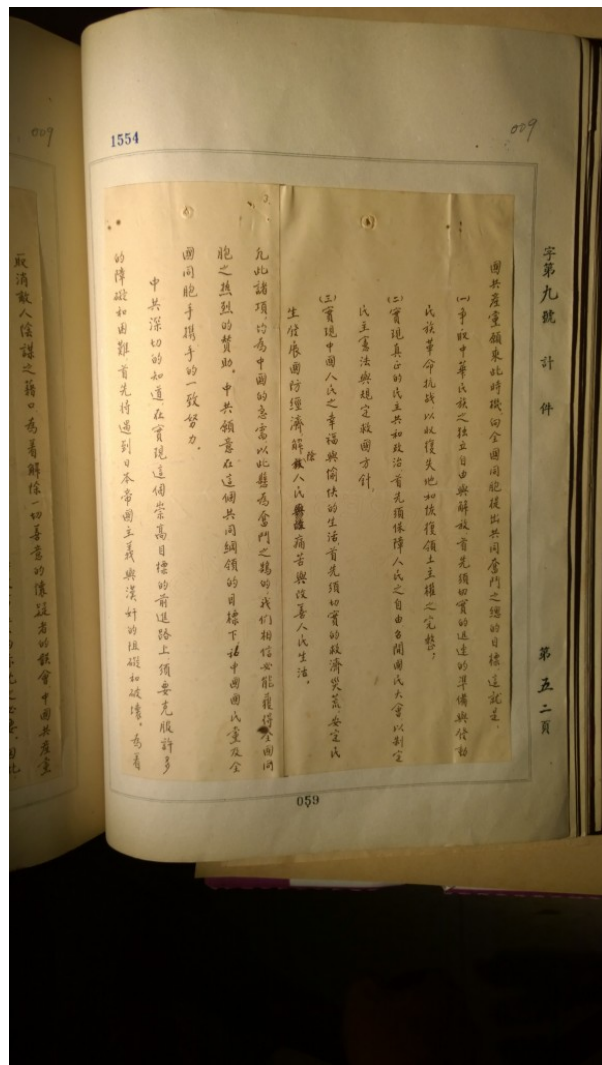 009
1554
009
字第九號計件
第五二頁
國共產黨願東此時機向全國同胞提出共同奮鬥之總的目標這就是、
(一)爭取中華民族之独立自由與解放首先須切實的迅速的準備與發動
民族革命抗战以收復失地和恢復領土主權之完整；
(二)實現真正的民主共和政治首先須保障人民之自由召開國民大會以制定
民主憲法與規定救國方針、
(三)實現中國人民之幸福與愉快的生活、首先須切實的救濟災荒、安定民
生發展國防經濟解除人民痛苦與改善人民生活。
凡此諸項均為中國的急需以此懸為奮鬥之鵠的我们相信必能獲得全國同
胞之热烈的賛助。中共願意在這個共同綱領的目標下

中國國民黨及全
國同胞手携手的一致努力。
中共深切的知道在實現這個崇高目標的前進路上須要克服許多
的障礙和困難首先待遇到日本帝國主義與漢奸的阻礙和破壞。為着
取消敵人陰謀之藉口為着解除一切善意的懷疑者的誤會中國共產黨
059